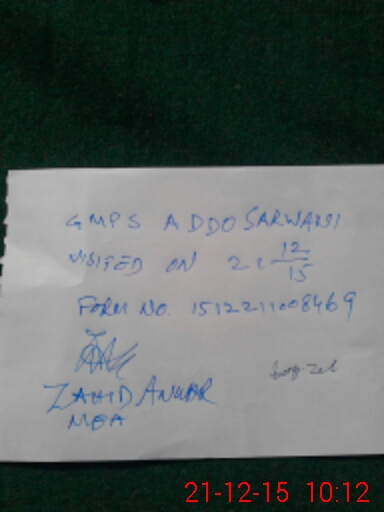 GMPS ADDO SARWANI
VISITED ON 21 12/15
FORM NO. 1512211008469
ZAHID ANWAR
MEA
21-12-15 10:12